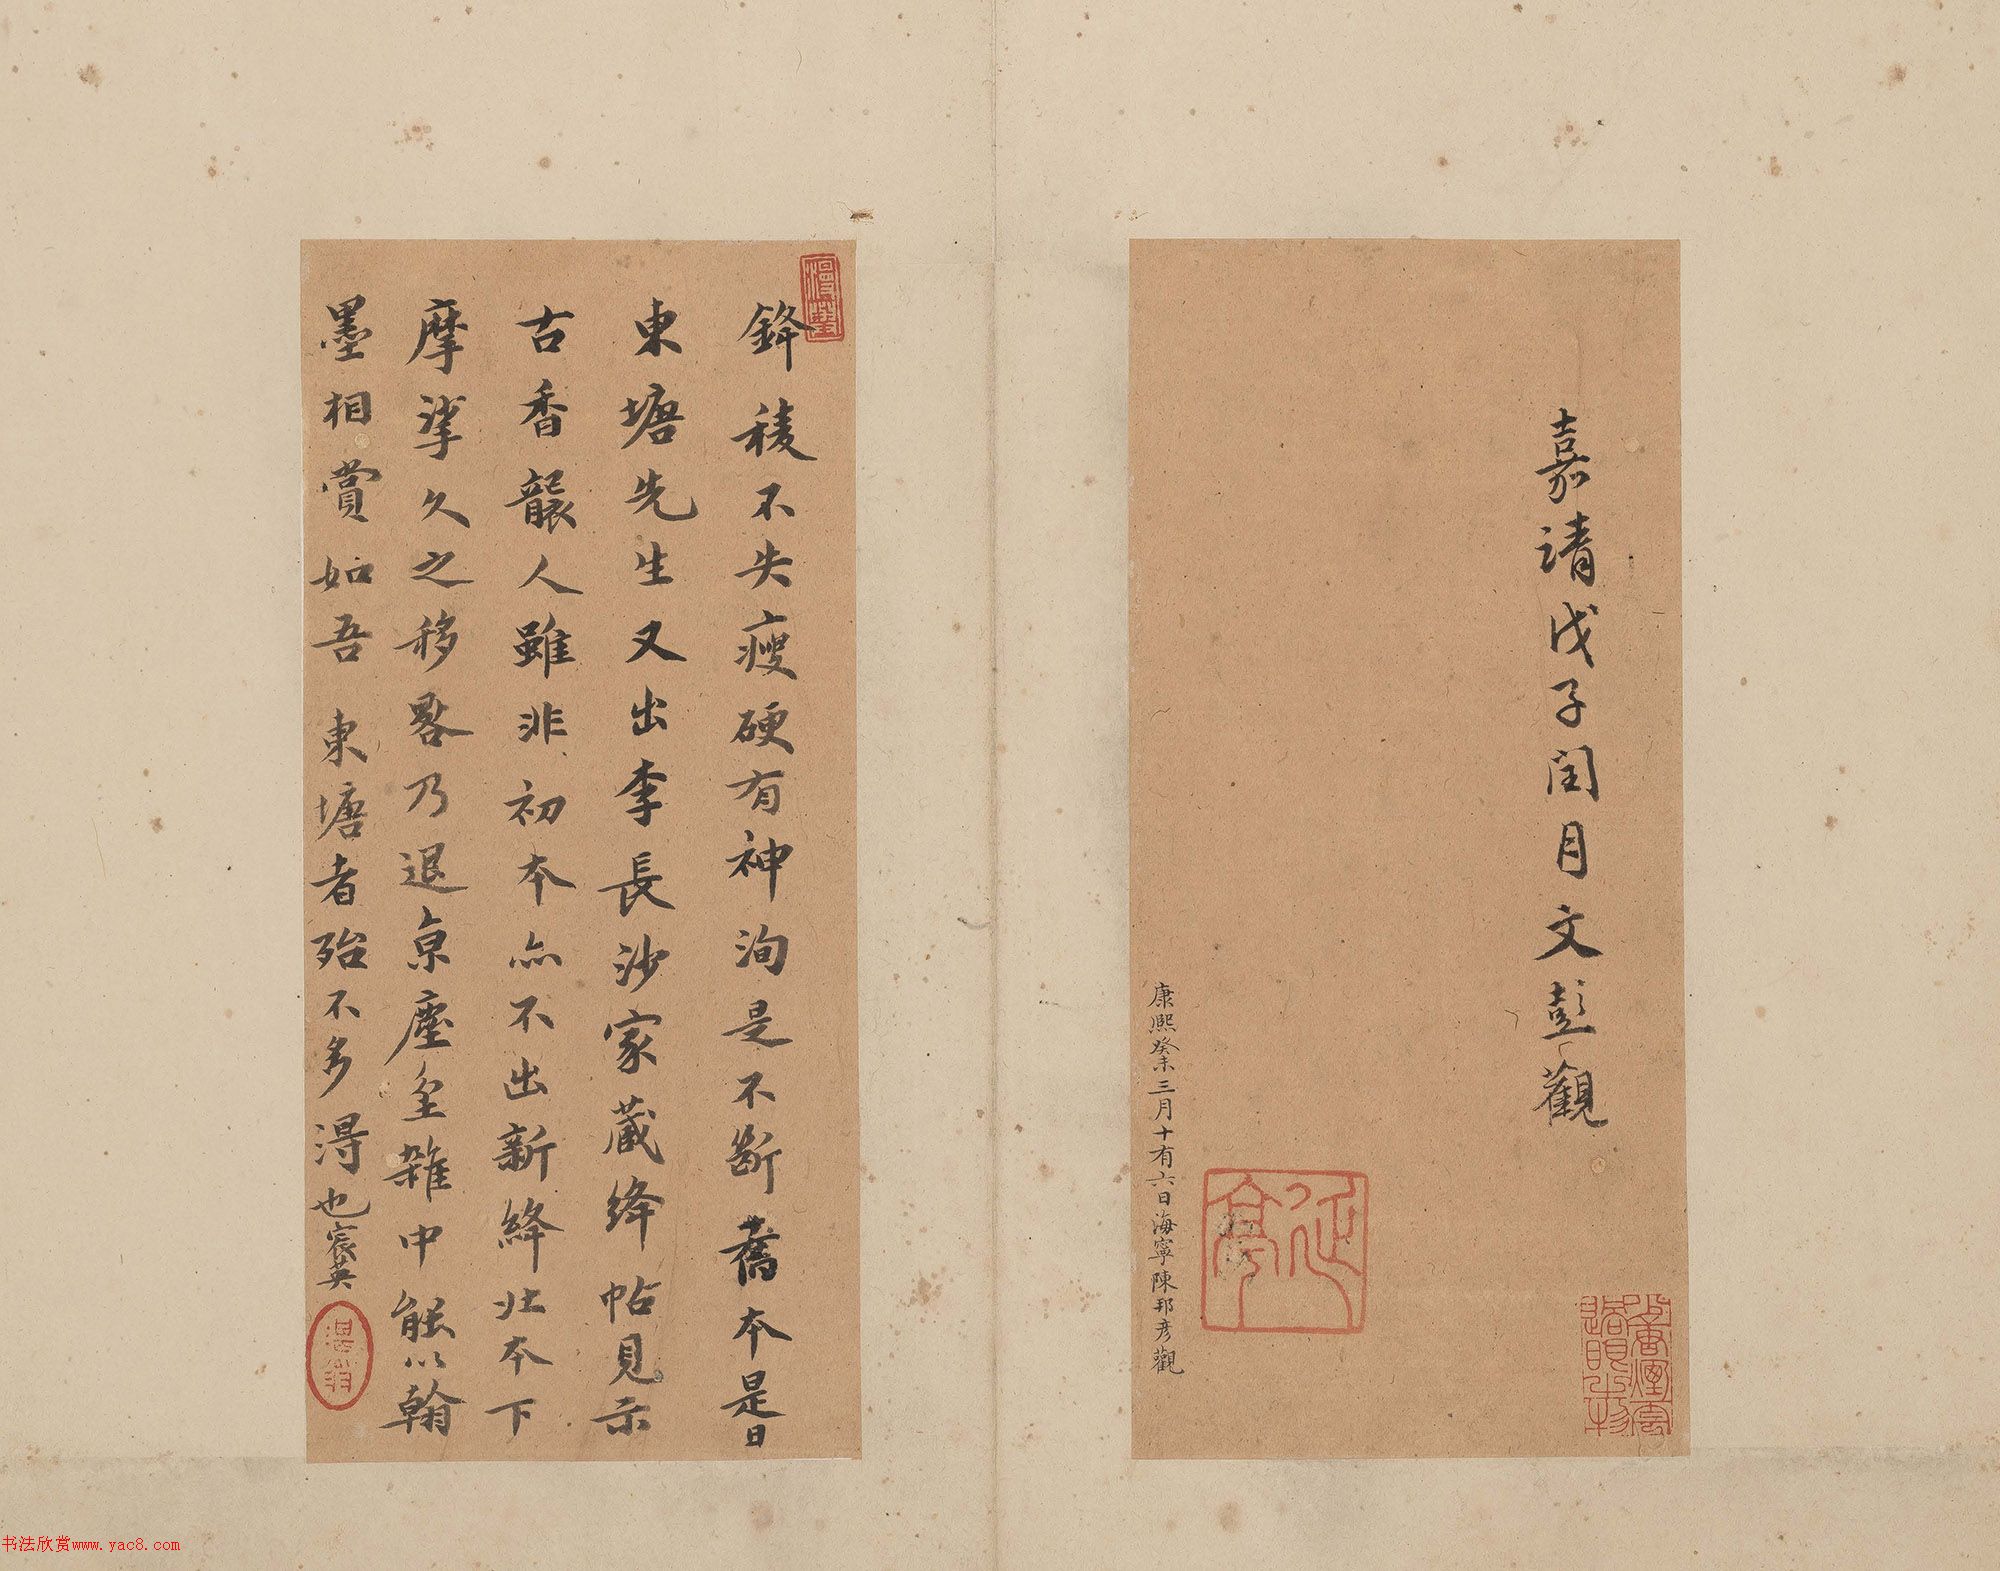 嘉靖戊子閏月文彭觀
康熙癸未三月十有六日海寧陳邦彥觀
鋒稜不失瘦硬有神洵是不斷舊本是日
東塘先生又出李長沙家藏絳帖見示
古香襲人雖非初本亦不出新絳北本下
摩挲久之移晷乃退京塵坌雜中能以翰
墨相賞如吾東塘者殆不多得也宸英
书法欣赏www.yac8.com